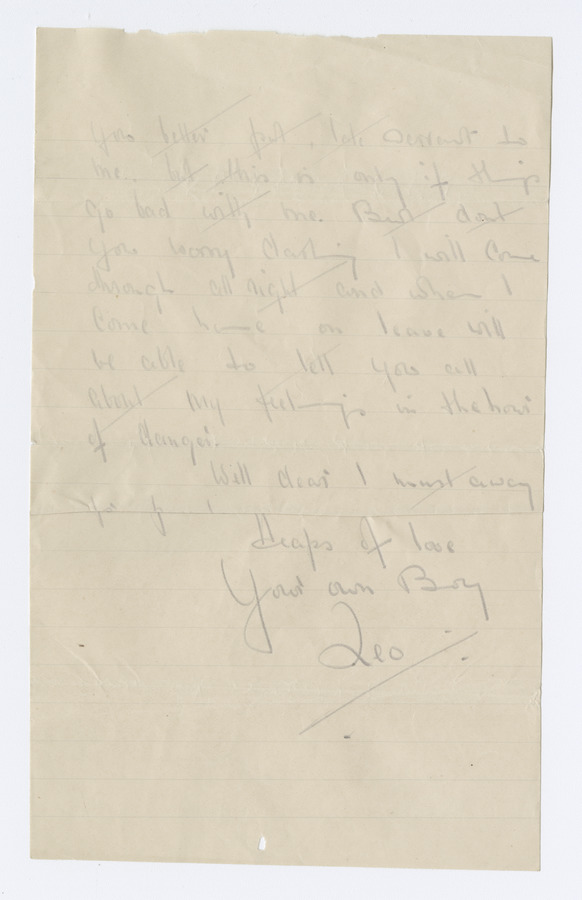 you better
me. but this is only if things
go bad with me. But dont
you worry darling I will come
through all right and when I
come home on leave will
be able to tell you all
about my feelings in the hour
of danger.
Well dear I must away
Heaps of love
Your own Boy
Leo